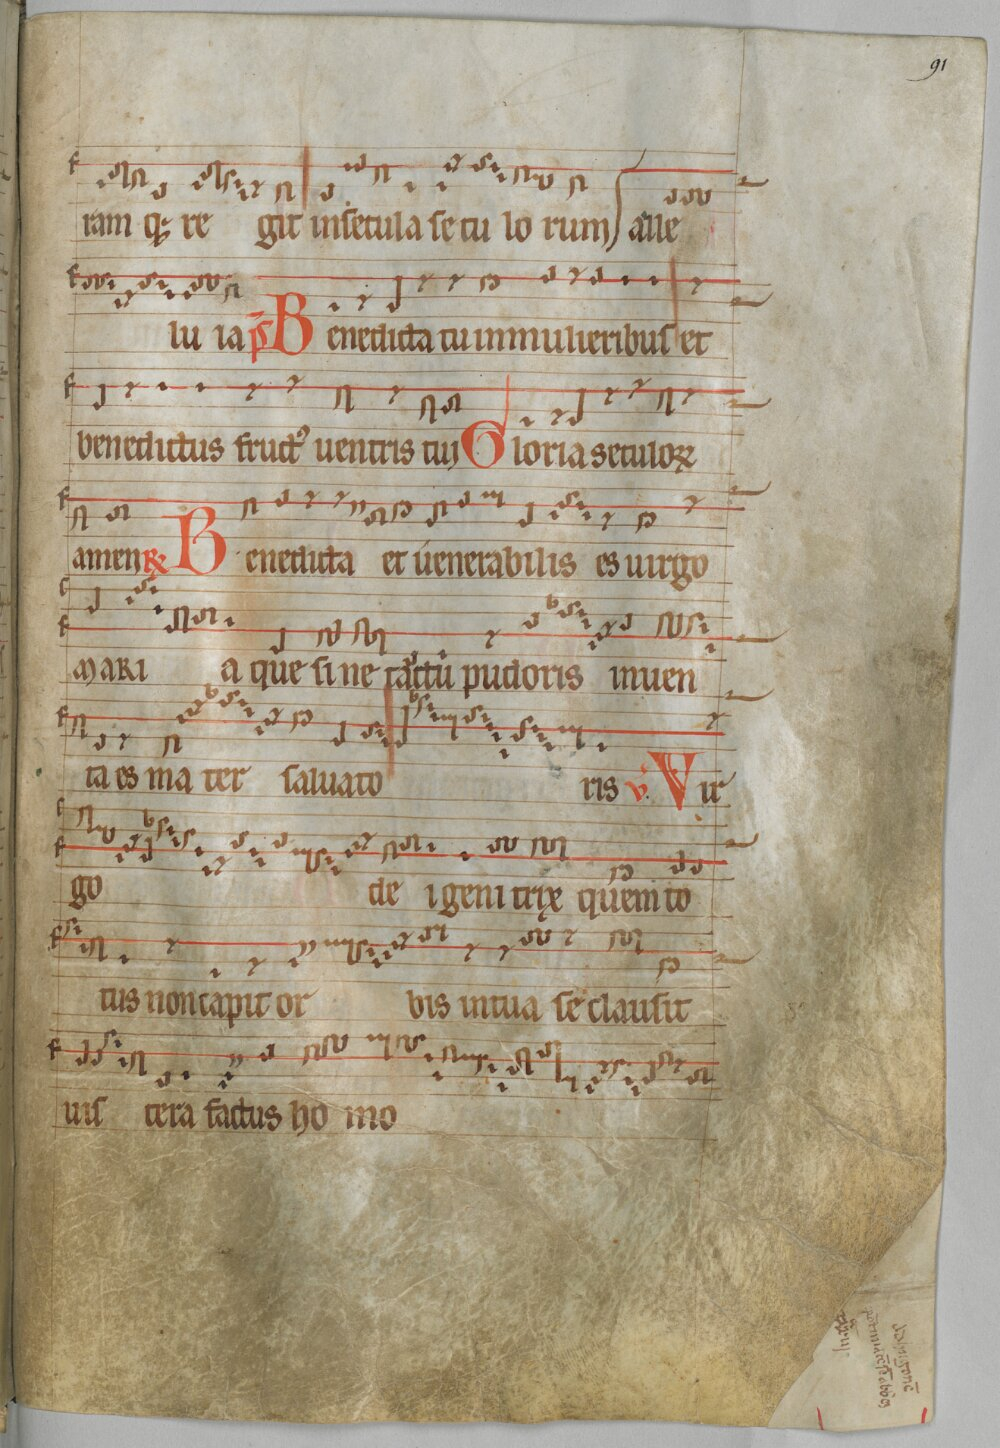 91
ram q; re git in secula se cu lo rum alle
lu ia ps Benedicta tu in mulieribus et
benedictus fruct᾽ uentris tui Gloria seculoꝝ
amen ℟ Benedicta et uenerabilis es uirgo
MARI a que sine tactu pudoris inuen
ta es ma ter saluato ris v. Vir
go de i genitrix quem to
tus non capit or bis in tua se clausit
uis cera factus ho mo